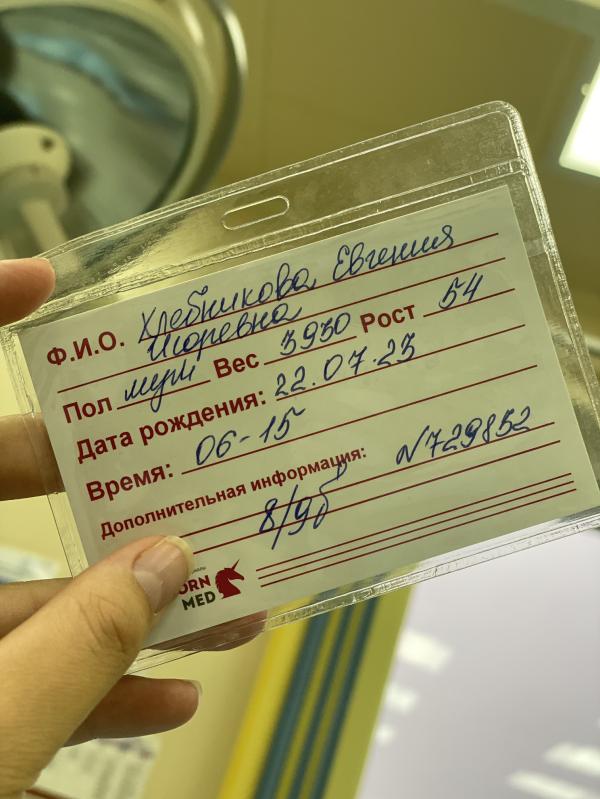 Ф.И.О. Хлебникова Евгения
Игоревна
Пол муж Вес 3930 Рост 54
Дата рождения: 22.07.23
Время: 06-15
Дополнительная информация: N729852
8/9б
ORN
MED